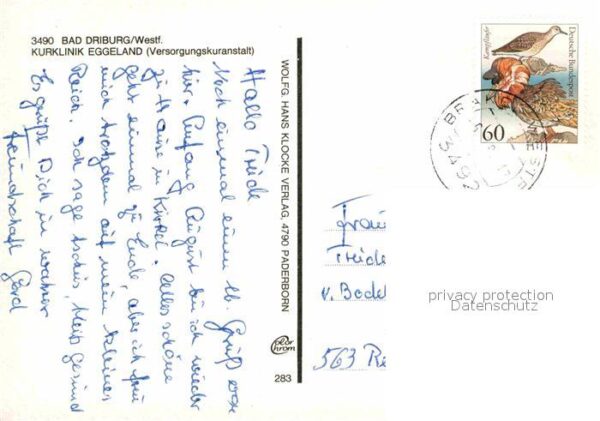 3490 BAD DRIBURG/Westf.
KURKLINIK EGGELAND (Versorgungskuranstalt)
Hallo Friede
Noch einmal einen lb. Gruß von
hier. Anfang August bin ich wieder
zu Hause in Alles schöne
geht einmal zu Ende, aber ich freu
mich trotzdem auf mein kleines
Reich. Ich sage tschüs, bleib gesund
Es grüßt Dich in wahrer
Freundschaft Gerd
WOLFG. HANS KLOCKE VERLAG, 4790 PADERBORN
color chrom
283
Kampfläufer
Deutsche Bundespost
60
3492 BRAKEL, WESTF
Frau
v. Bodel
563 Re
privacy protection
Datenschutz